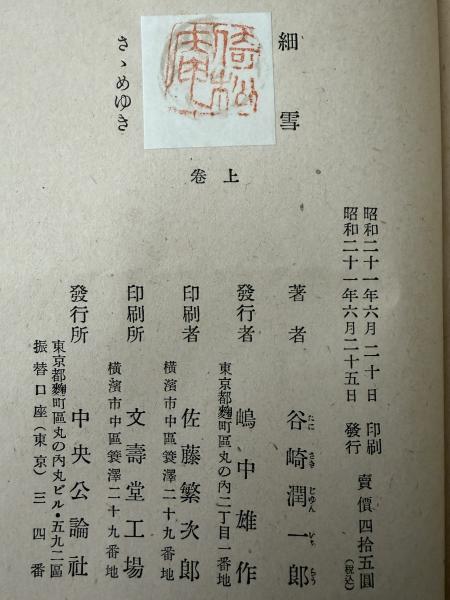 細雪
さゝめゆき
倚松庵
上卷
昭和二十一年六月二十日 印刷
昭和二十一年六月二十五日 發行
賣價四拾五圓(税込)
著者 谷崎潤一郎
たにざきじゆんいちらう
發行者 嶋中雄作
東京都麴町區丸の內二丁目一番地
印刷者 佐藤繁次郎
横濱市中區簑澤二十九番地
印刷所 文壽堂工場
横濱市中區簑澤二十九番地
發行所 中央公論社
東京都麴町區丸の內丸ビル・五九二區
振替口座(東京)三四番